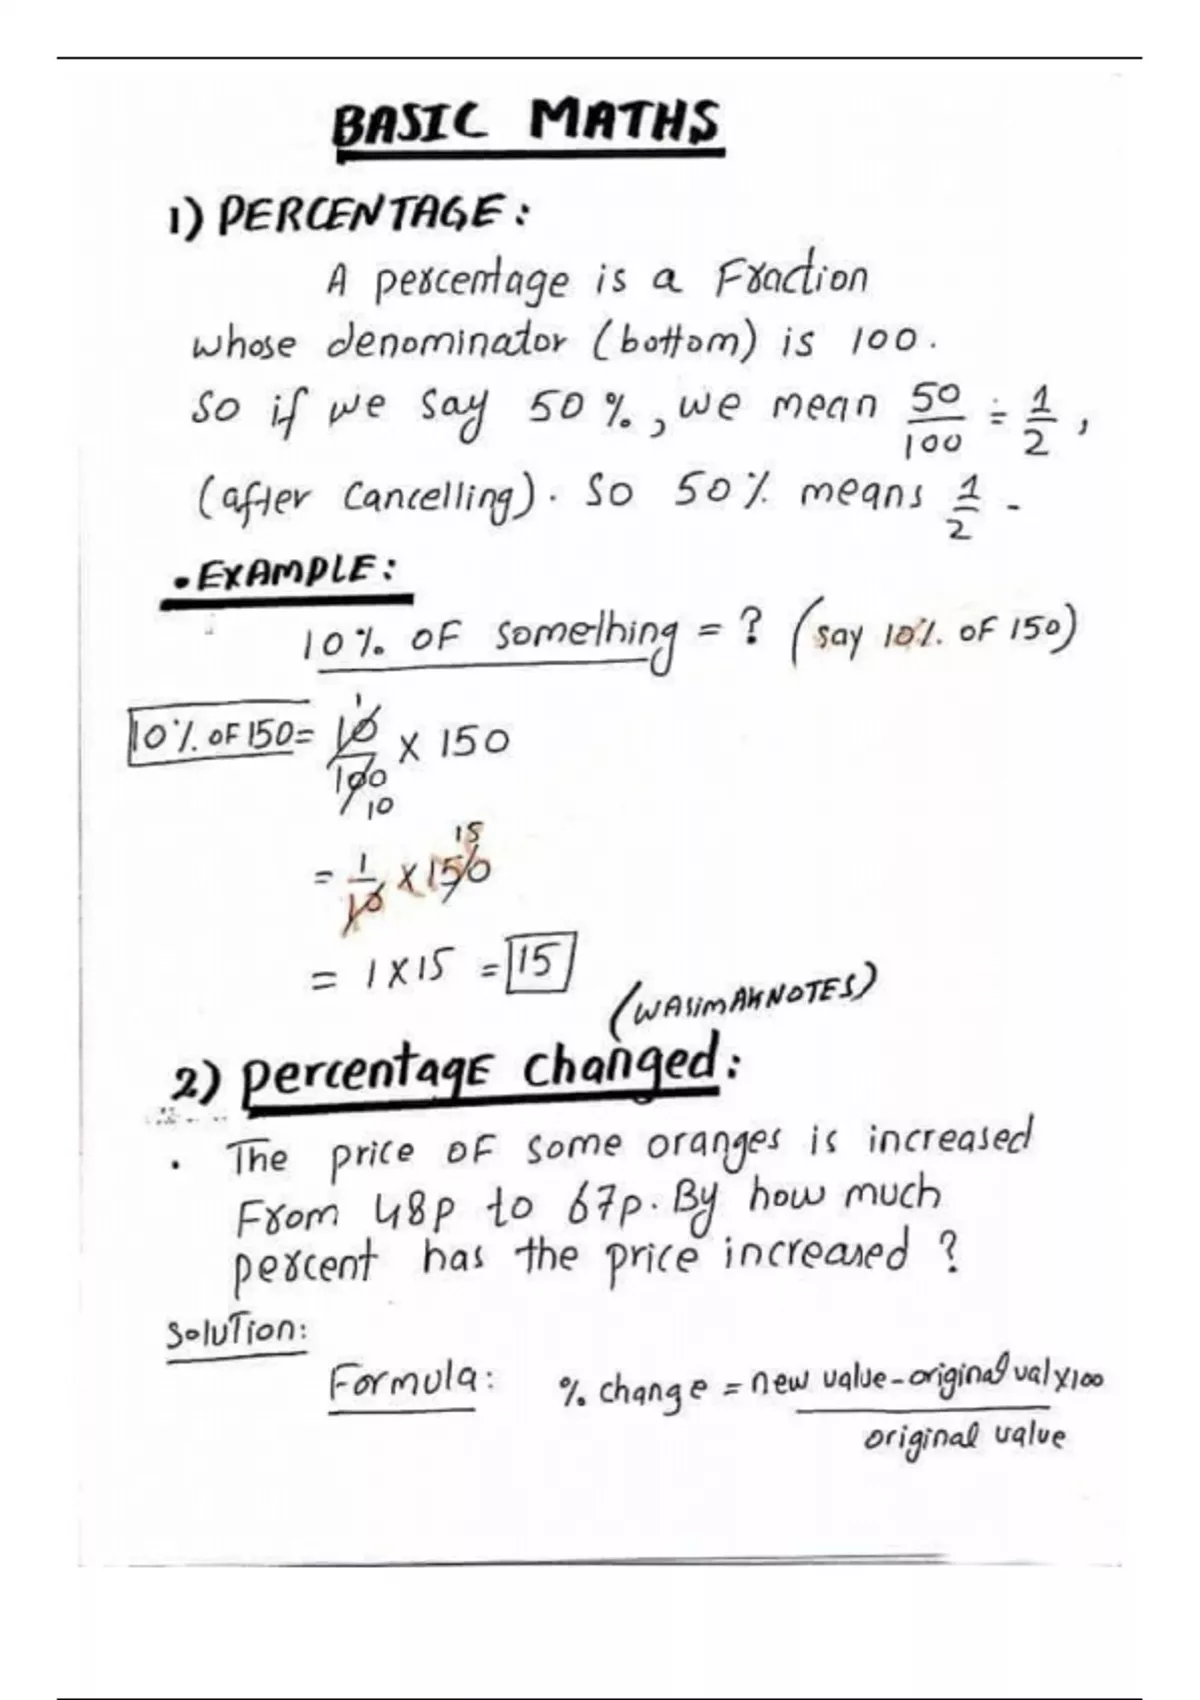 BASIC MATHS
1) PERCENTAGE:
A percentage is a Fraction
whose denominator (bottom) is 100.
So if we say 50%, we mean 50/100 = 1/2,
(after Cancelling). So 50% means 1/2.
• EXAMPLE:
10% OF something = ? (say 10% OF 150)
10% OF 150 = 10/100 × 150
1
10
= 1/10 × 150
15
= 1 × 15 = 15
(WASIMAKNOTES)
2) Percentage Changed:
• The price OF some oranges is increased
From 48p to 67p. By how much
percent has the price increased ?
Solution:
Formula: % change = new value - original val × 100
original value